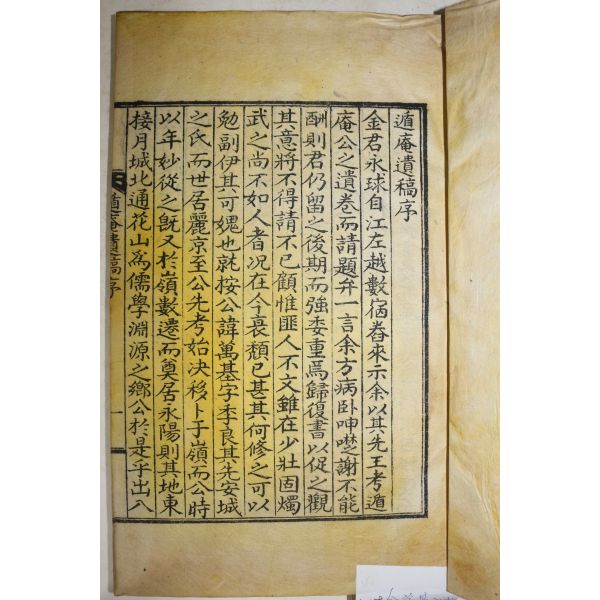 遁庵遺稿序
金君永球自江左越數宿舂來示余以其先王考遁
庵公之遺卷而請題弁一言余方病臥呻囈謝不能
酬則君仍留之後期而強委重焉歸復書以促之觀
其意將不得請不已顧惟匪人不文雖在少壯固燭
武之尚不如人者况在今衰頹已甚其何修之可以
勉副伊其可媿也就按公諱萬基字李良其先安城
之氏而世居麗京至公先考始决移卜于嶺而公時
以年妙從之旣又於嶺數遷而奠居永陽則其地東
接月城北通花山爲儒學淵源之鄕公於是乎出入
遁庵遺稿序
一